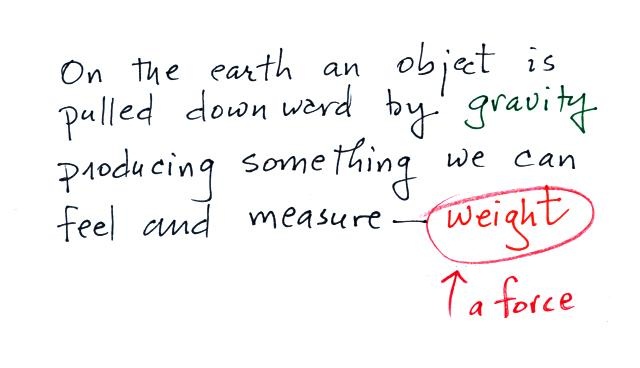 On the earth an object is
pulled downward by gravity
producing something we can
feel and measure — weight
↑ a force